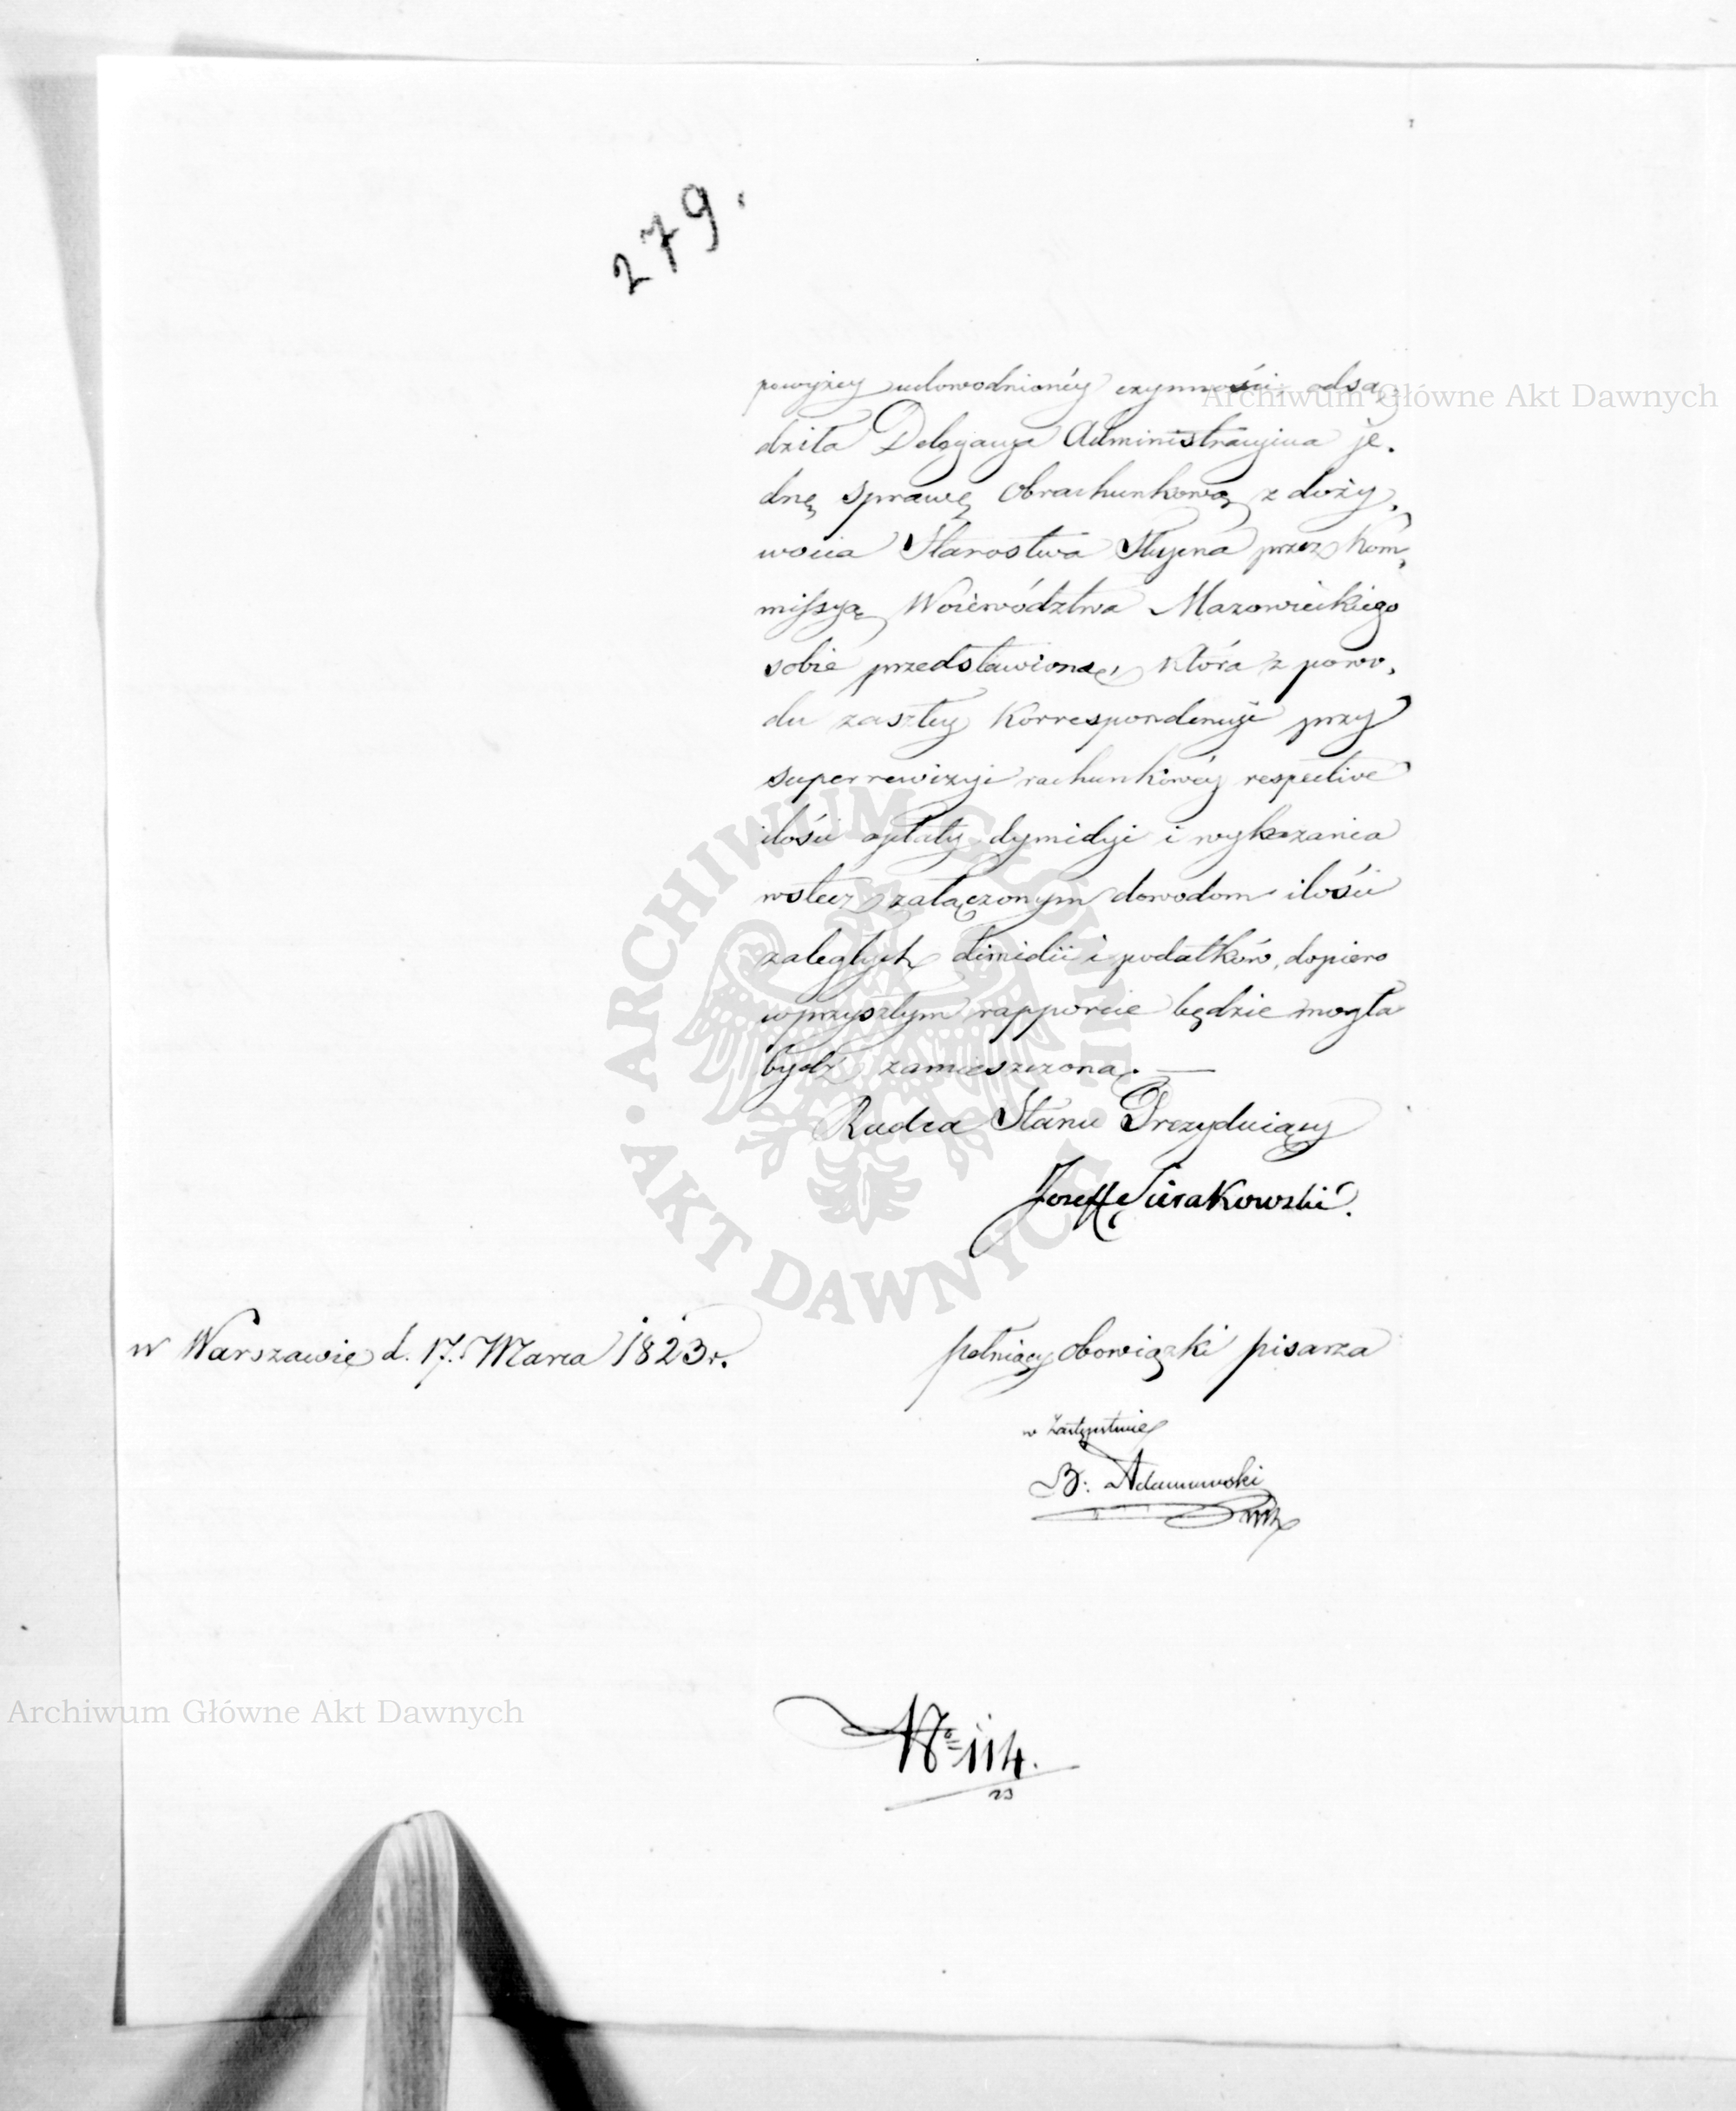 279.
powyżey udowodnionéy czynności, odsą-
dziła Delegacya Administracyina je-
dnę sprawę Obrachunkową z doży-
wocia Starostwa Stężena przez Kom-
missyą Woiewództwa Mazowieckiego
sobie przedstawioną, która z powo-
du zaszłey Korrespondencyi przy
superrewizyi rachunkowéy respective
ilości opłaty dymidyi i wykazania
wstecz załączonym dowodom ilości
zaległych dimidii i podatków, dopiero
w przyszłym rapporcie będzie mogła
bydź zamieszczoną. —
Radca Stanu Prezyduiący
Jozeff Sierakowski.
w Warszawie d. 17. Marca 1823 r.
pełniący obowiązki pisarza
w Zastępstwie
B: Adamowski
No 114.
23
Archiwum Główne Akt Dawnych
Archiwum Główne Akt Dawnych
ARCHIWUM GŁÓWNE · AKT DAWNYCH ·